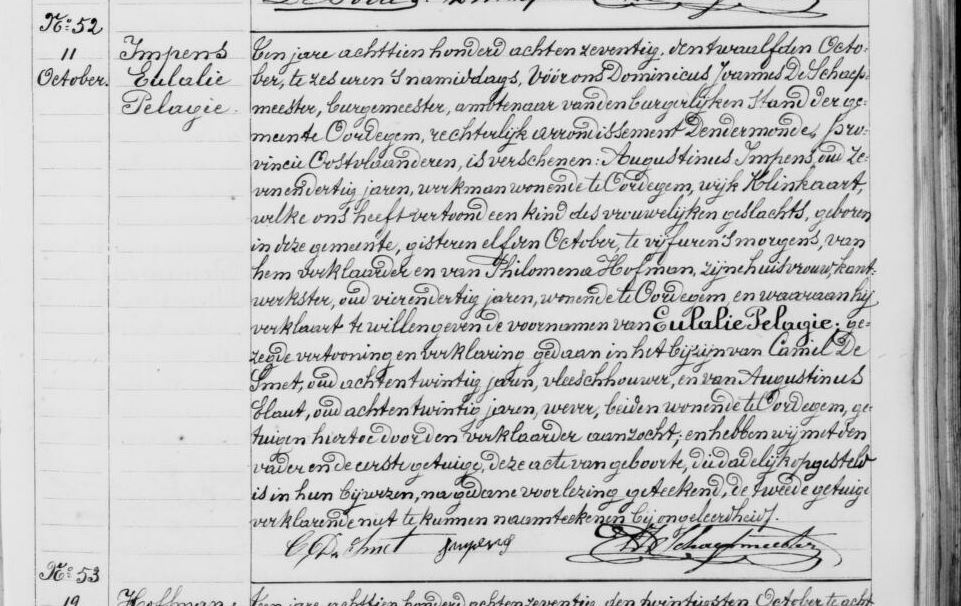 N.º 52
11 October.
Impens
Eulalie
Pelagie.
Ten jare achttien honderd achtenzeventig, den twaalfden Octo-
ber, te zes uren 's namiddags, vóór ons Dominicus Joannes De Schaep-
meester, burgemeester, ambtenaar van den burgerlijken stand der ge-
meente Oordegem, rechterlijk arrondissement Dendermonde, pro-
vincie Oostvlaanderen, is verschenen: Augustinus Impens, oud ze-
venendertig jaren, werkman wonende te Oordegem, wijk Klinkaart,
welke ons heeft vertoond een kind des vrouwelijken geslachts, geboren
in deze gemeente, gisteren elfden October, te vijf uren 's morgens, van
hem verklaarder en van Philomena Hofman, zijne huisvrouw, kant-
werkster, oud vierendertig jaren, wonende te Oordegem, en waaraan hij
verklaart te willen geven de voornamen van Eulalie Pelagie; ge-
zegde vertooning en verklaring gedaan in het bijzijn van Camiel De
Smet, oud achtentwintig jaren, vleeschhouwer, en van Augustinus
Blaut, oud achtentwintig jaren, wever, beiden wonende te Oordegem, ge-
tuigen hiertoe door den verklaarder aanzocht; en hebben wij met den
vader en de eerste getuige, deze acte van geboorte, die dadelijk opgesteld
is in hun bijwezen, na gedane voorlezing geteekend, de tweede getuige
verklarende niet te kunnen naamteekenen bij ongeleerdheid.
C De Smet Impens De Schaepmeester
N.º 53
19 Hoffman. Ten jare achttien honderd achtenzeventig, den twintigsten October te acht